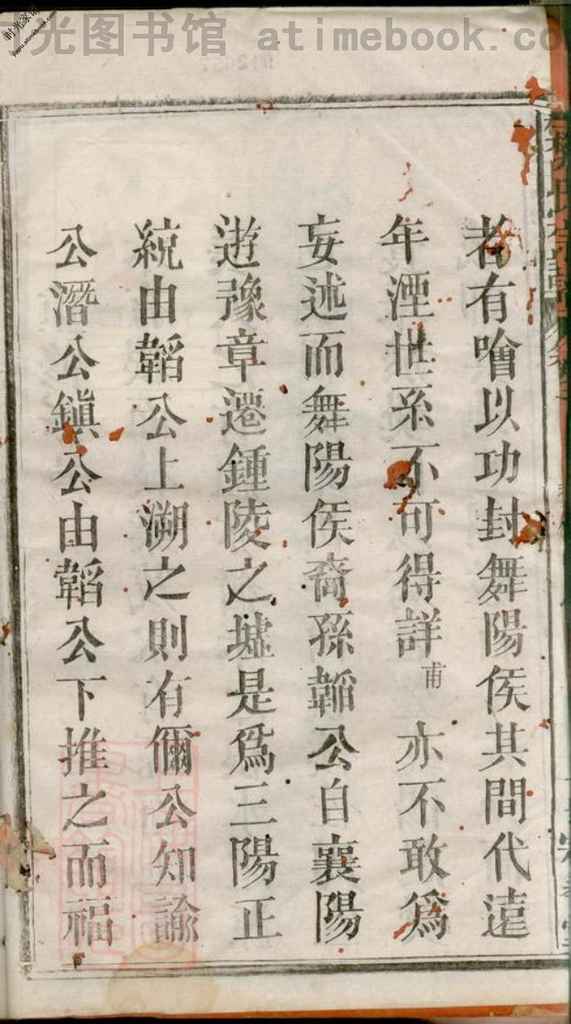 光图书馆 atimebook.co
者有噲以功封舞陽侯其間代遠
年湮世系不可得詳甫 亦不敢為
妄述而舞陽侯裔孫韜公自襄陽
遊豫章遷鍾陵之墟是為三陽正
統由韜公上溯之則有儞公知諭
公潛公鎮公由韜公下推之而福